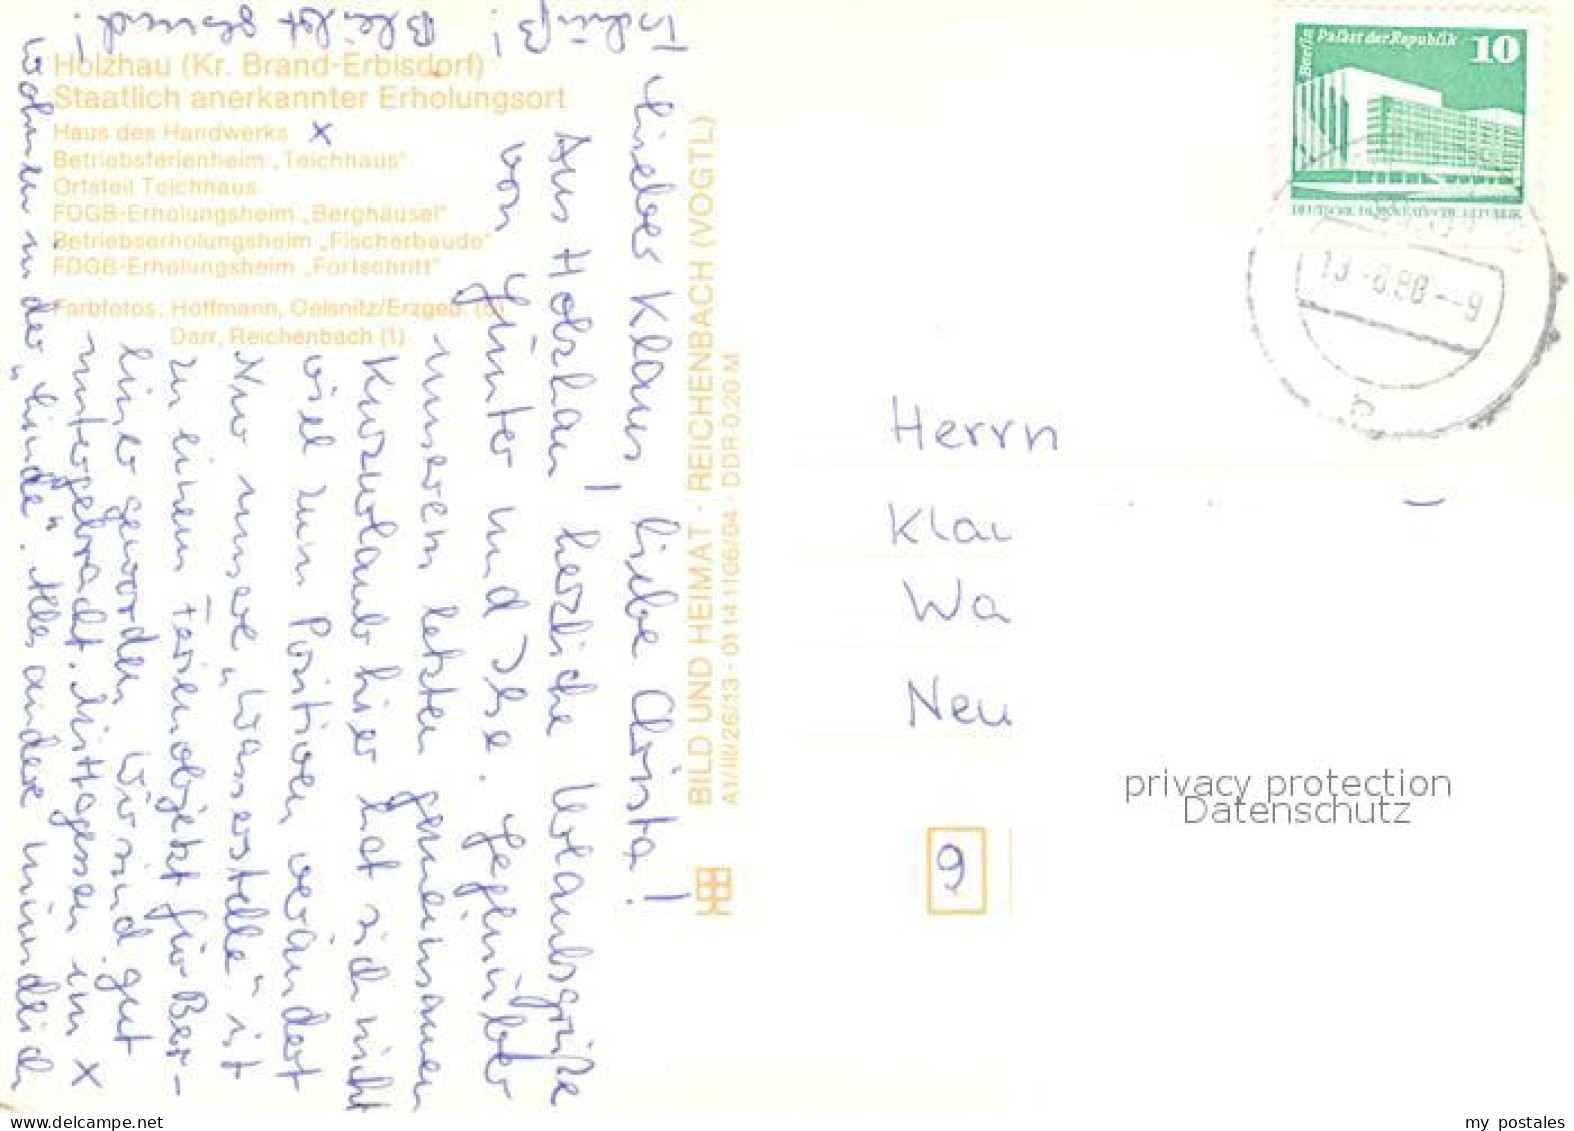 Holzhau (Kr. Brand-Erbisdorf)
Staatlich anerkannter Erholungsort
Haus des Handwerks x
Betriebsferienheim „Teichhaus"
Ortsteil Teichhaus
FDGB-Erholungsheim „Berghäusel"
Betriebserholungsheim „Fischerbaude"
FDGB-Erholungsheim „Fortschritt"
Farbfotos: Hoffmann, Oelsnitz/Erzgeb. (5)
Darr, Reichenbach (1)
Lieber Klaus, liebe Christa!
Aus Holzhau herzliche Urlaubsgrüße
von Günter und Ilse. Gegenüber
unserem letzten gemeinsamen
Kurzurlaub hier hat sich nicht
viel zum Positiven verändert
Nur unsere „Wasserstelle" ist
zu einem Ferienobjekt für Ber-
liner geworden. Wir sind gut
untergebracht. Mittagessen im x
wohnen in der „Linde". Alles andere mündlich
Tschüß! Bleibt gesund!
BILD UND HEIMAT · REICHENBACH (VOGTL)
A1/III/26/13 · 01 14 11 06/04 · DDR 0.20 M
Berlin Palast der Republik 10
DEUTSCHE DEMOKRATISCHE REPUBLIK
13.-6.88--9
Herrn
Klau
Wa
Neu
9
privacy protection
Datenschutz
www.delcampe.net
my postales